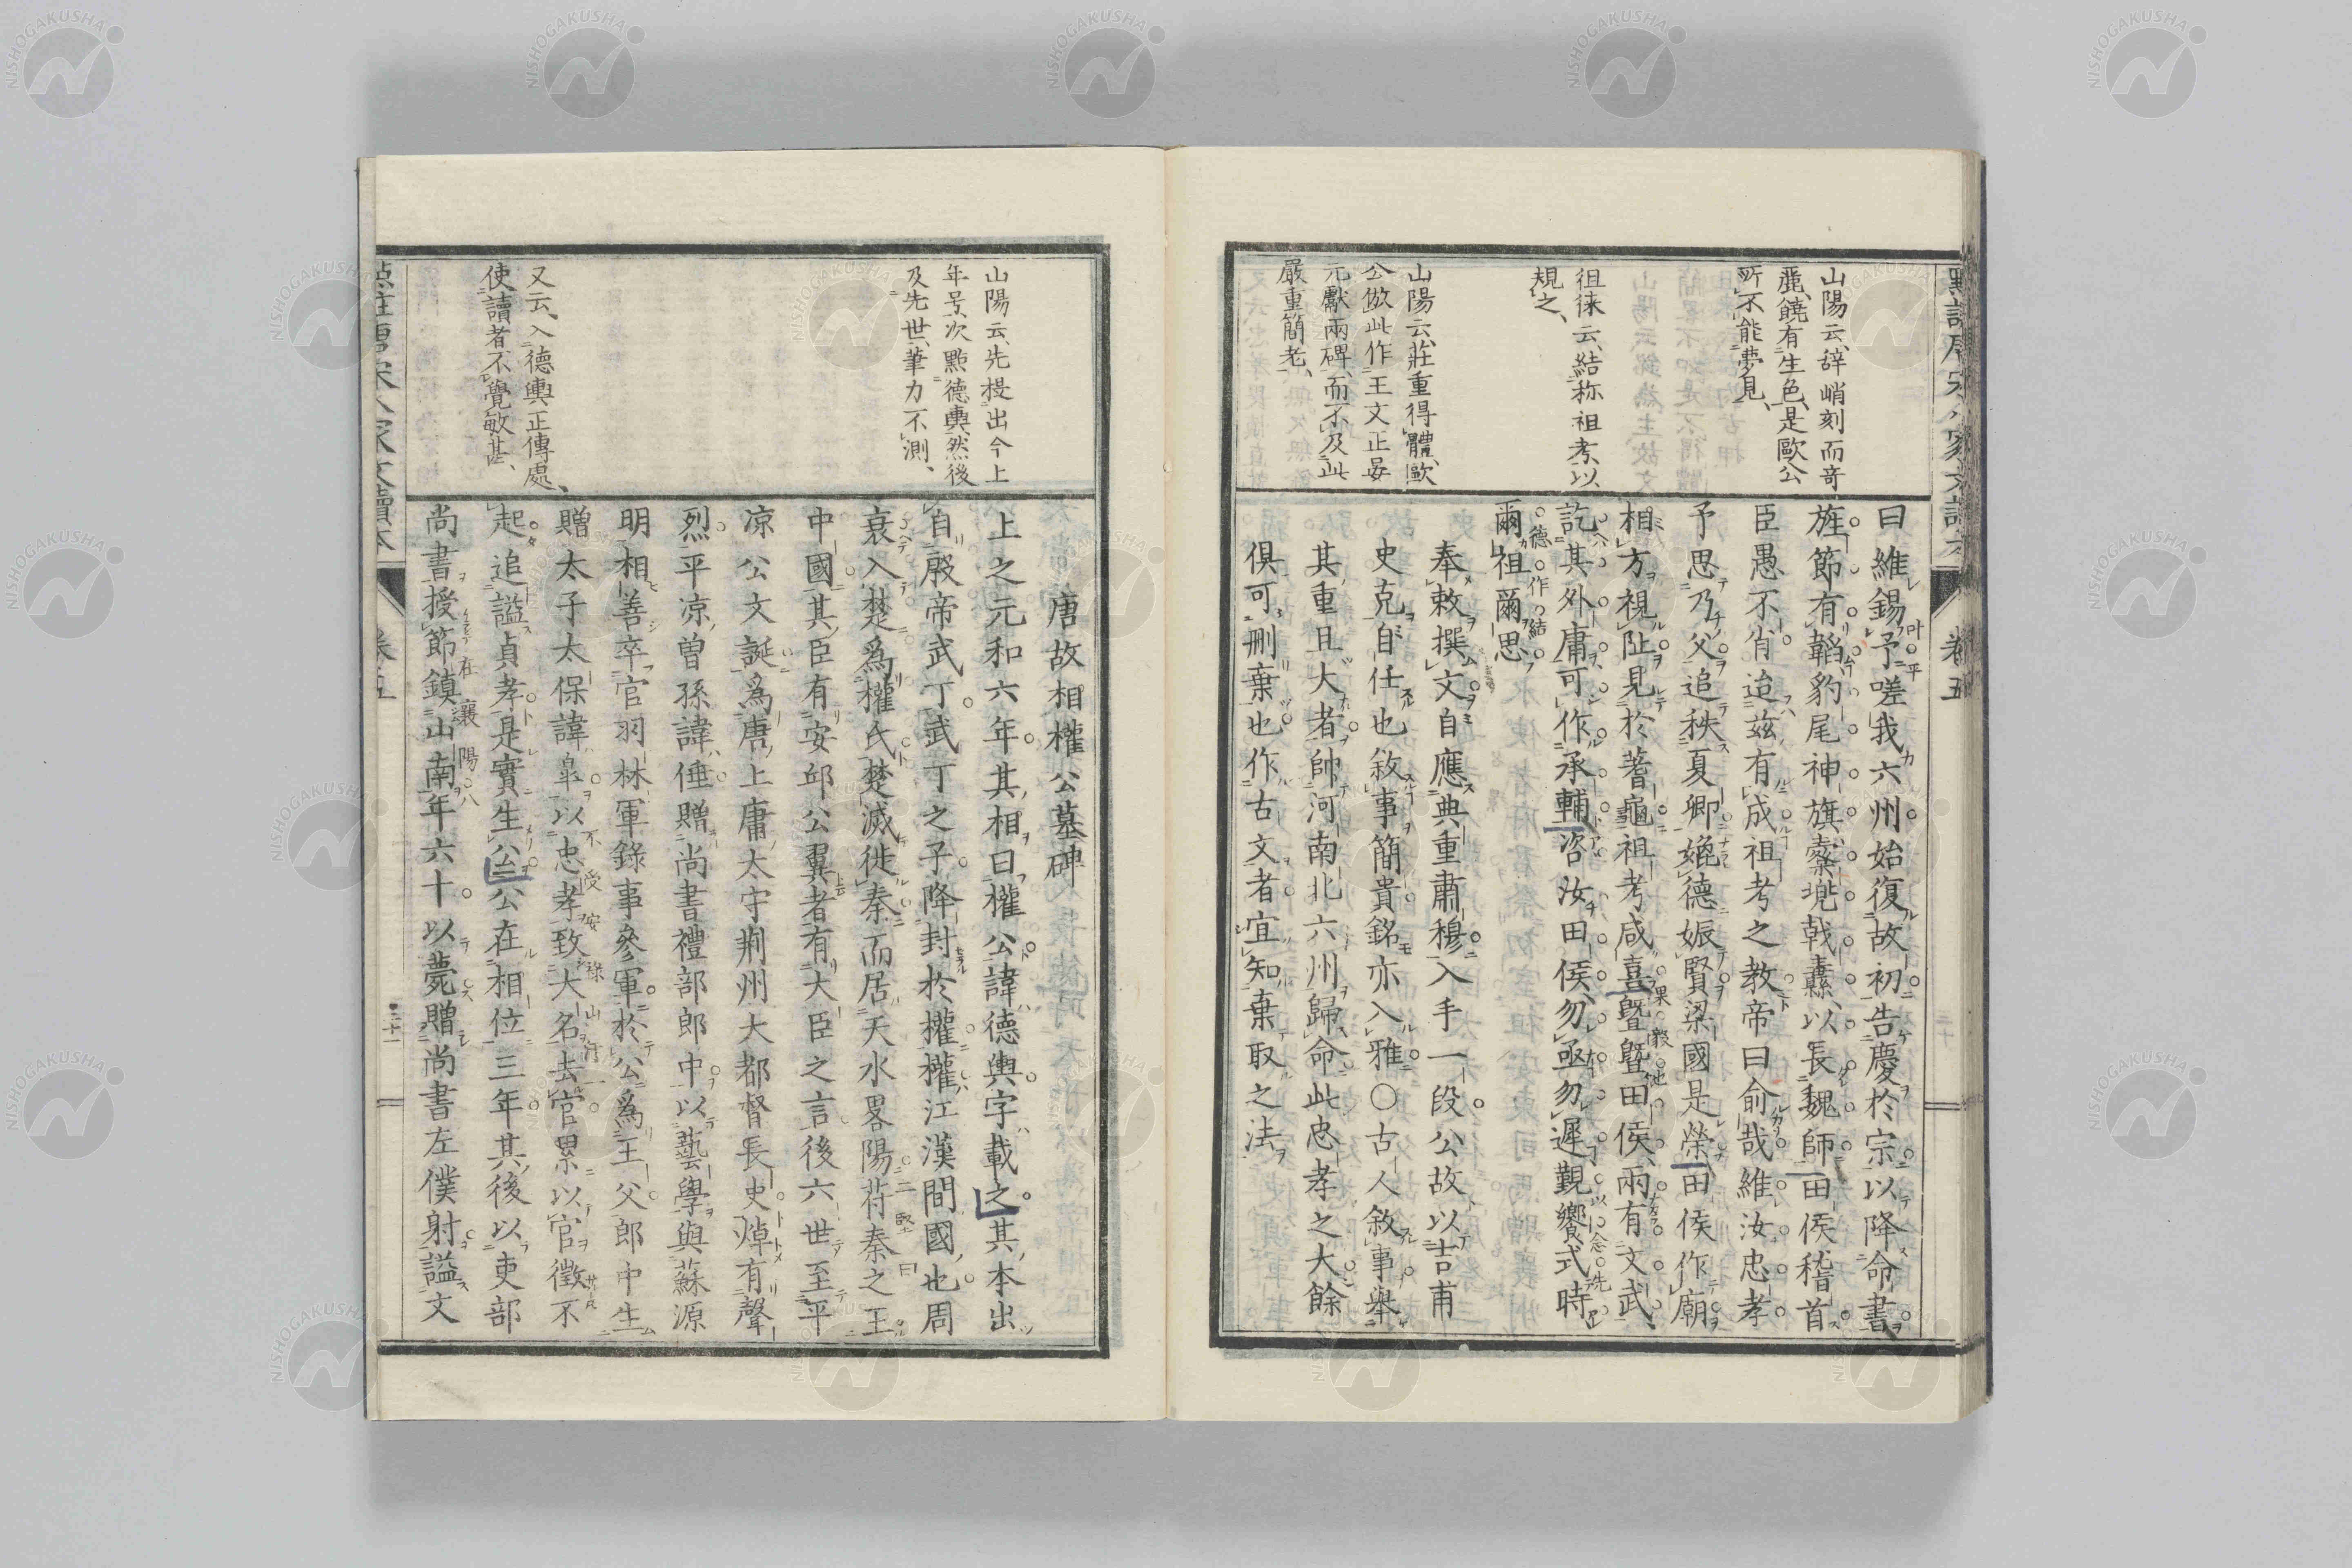 山陽云、辞峭刻而奇
麗、饒有生色、是歐公
所不能夢見、
徂徠云、結称祖考、以
規之、
山陽云、莊重得體、歐
公倣此作王文正晏
元獻兩碑、而不及此
嚴重簡老、
曰維錫予嗟我六州始復故初告慶於宗以降命書
旌節有韜豹尾神旗櫜兠戟纛、以長魏師田侯稽首
臣愚不肖迨茲有成祖考之教帝曰俞哉維汝忠孝
予思乃父追秩夏卿媲德娠賢梁國是榮田侯作廟
相方視阯見於蓍龜祖考咸喜曁曁田侯、兩有文武、
訖其外庸可作承輔咨汝田侯、勿亟勿遲觀饗式時
爾祖爾思
奉敕撰文自應典重肅穆入手一段公故以吉甫
史克自任也敘事簡貴銘亦入雅○古人敘事舉
其重且大者帥河南北六州歸命此忠孝之大餘
俱可刪棄也作古文者宜知棄取之法
卷五
山陽云、先提出今上
年号、次點德輿、然後
及先世、筆力不測、
又云、入德輿正傳處、
使讀者不覺敏甚、
唐故相權公墓碑
上之元和六年其相曰權公諱德輿字載之其本出
自殷帝武丁武丁之子降封於權權江漢間國也周
衰入楚爲權氏楚滅徙秦而居天水畧陽苻秦之王
中國其臣有安邱公翼者有大臣之言後六世至平
凉公文誕爲唐上庸太守荆州大都督長史焯有聲
烈平凉曾孫諱倕贈尚書禮部郎中以藝學與蘇源
明相善卒官羽林軍錄事參軍於公爲王父郎中生
贈太子太保諱皐以忠孝致大名去官累以官徵不
起追謚貞孝是實生公公在相位三年其後以吏部
尚書授節鎮山南年六十以薨贈尚書左僕射謚文